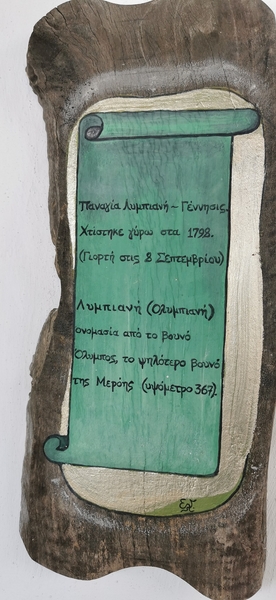 Παναγία Λυμπιανή ~ Γέννησις.
Χτίστηκε γύρω στα 1798.
(Γιορτή στις 8 Σεπτεμβρίου)
Λυμπιανή (Ολυμπιανή)
ονομασία από το βουνό
Όλυμπος, το ψηλότερο βουνό
της Μερόης (υψόμετρο 367).